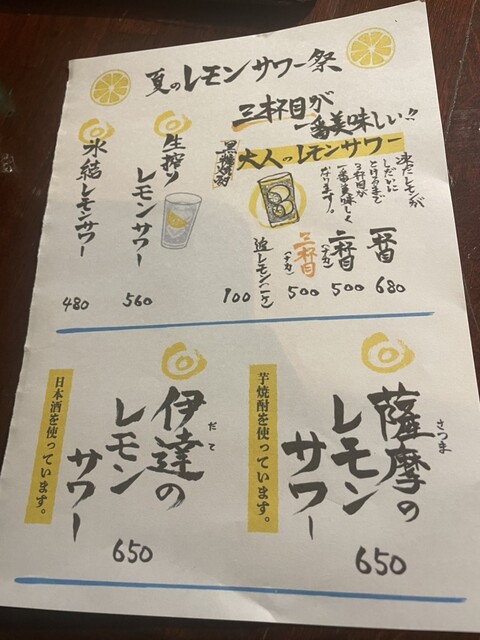 夏のレモンサワー祭
三杯目が
一番美味しい!!
黒糖焼酎
大人のレモンサワー
凍ったレモンが
しだいに
とけるまで
3杯目が
一番美味しく
なります。
一杯目
680
二杯目
(ナカ)
500
三杯目
(ナカ)
500
追レモン(一ケ)
100
生搾り
レモンサワー
560
氷結レモンサワー
480
薩摩の
さつま
レモン
サワー
芋焼酎を使っています。
650
伊達の
だて
レモン
サワー
日本酒を使っています。
650